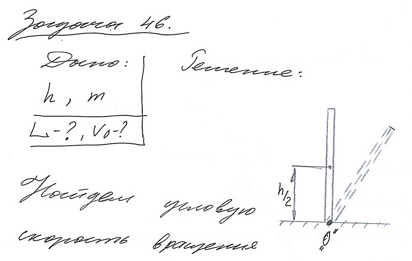 Задача 46.
Дано:
h, m
L-?, v₀-?
Решение:
h/2
"0"
Найдем угловую
скорость вращения